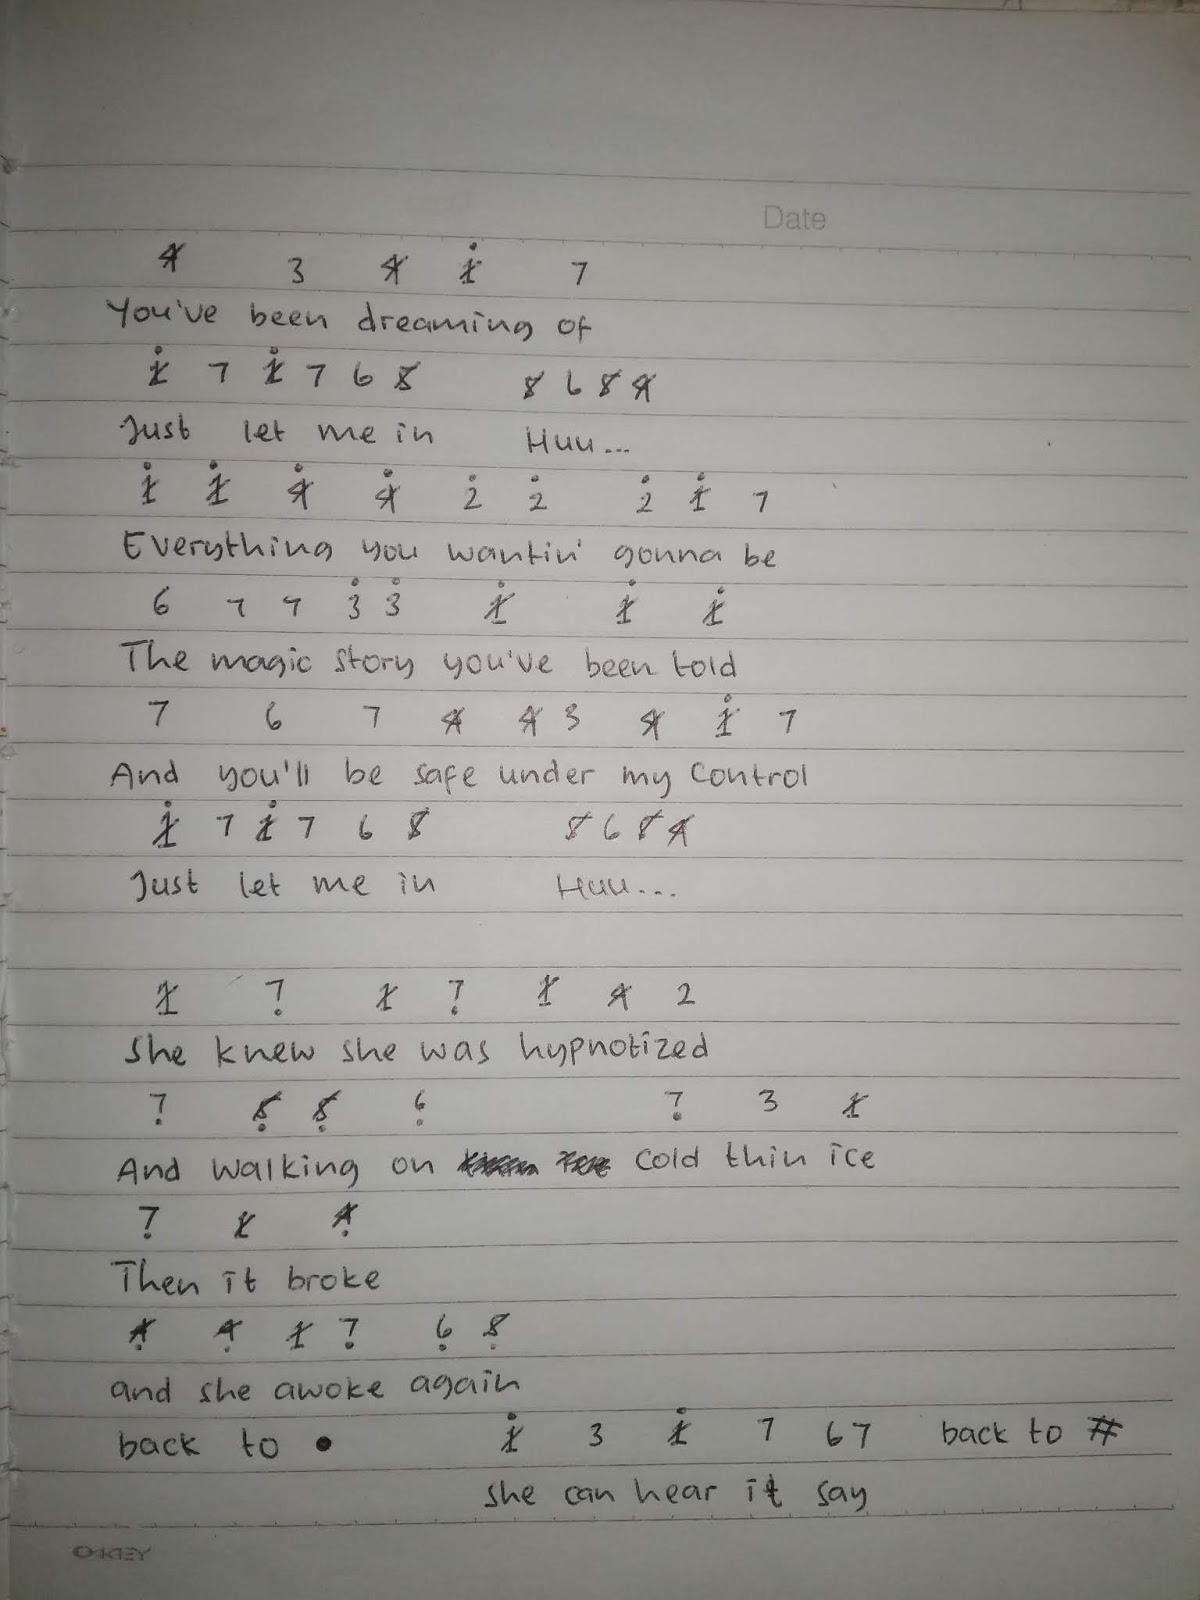 Date
4 3 4 1̇ 7
You've been dreaming of
1̇ 7 1̇ 7 6 5 5 6 5 4
Just let me in Huu...
1̇ 1̇ 4̇ 4̇ 2̇ 2̇ 2̇ 1̇ 7
Everything you wantin' gonna be
6 7 7 3̇ 3̇ 1̇ 1̇ 1̇
The magic story you've been told
7 6 7 4 4 3 4 1̇ 7
And you'll be safe under my control
1̇ 7 1̇ 7 6 5 5 6 5 4
Just let me in Huu...
1 7̣ 1 7̣ 1 4 2
She knew she was hypnotized
7̣ 5̣ 5̣ 6̣ 7̣ 3 1
And walking on cold thin ice
7̣ 1 4̣
Then it broke
4̣ 4̣ 1 7̣ 6̣ 5̣
and she awoke again
back to • 1̇ 3 1̇ 7 67 back to #
she can hear it say
OKEY